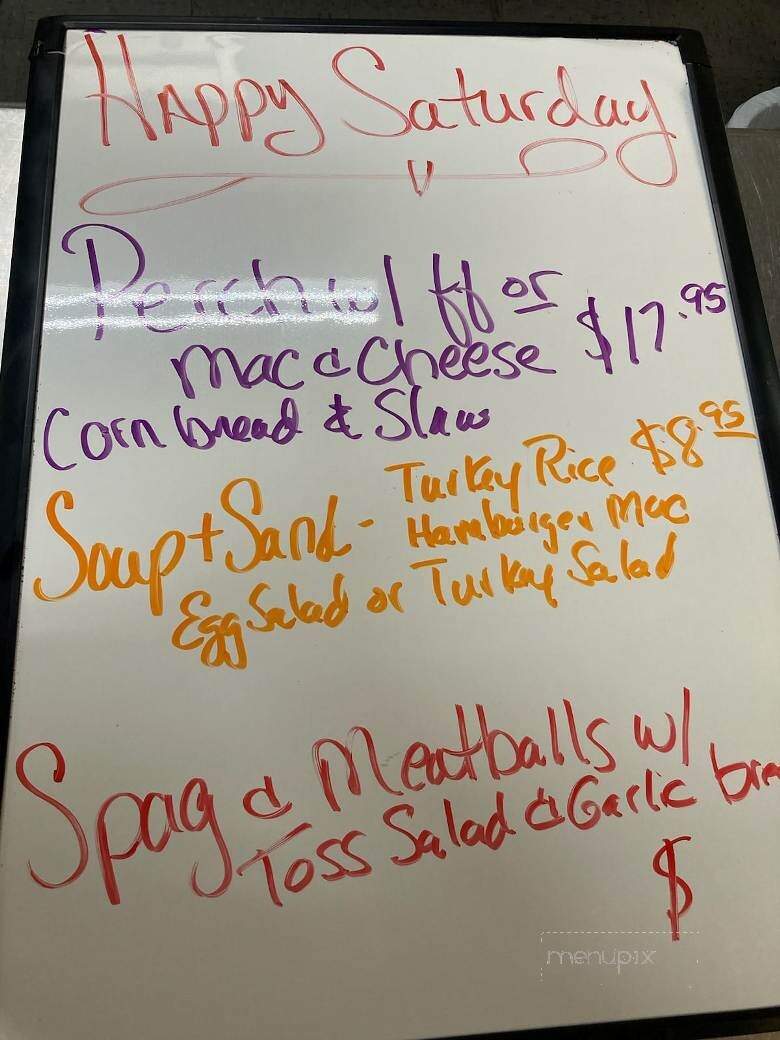 Happy Saturday
Perch w/ ff or
mac & Cheese $17.95
Corn bread & Slaw
Soup + Sand - Turkey Rice $8.95
Hamburger Mac
Egg Salad or Turkey Salad
Spag & Meatballs w/
Toss Salad & Garlic brea
$
menupix